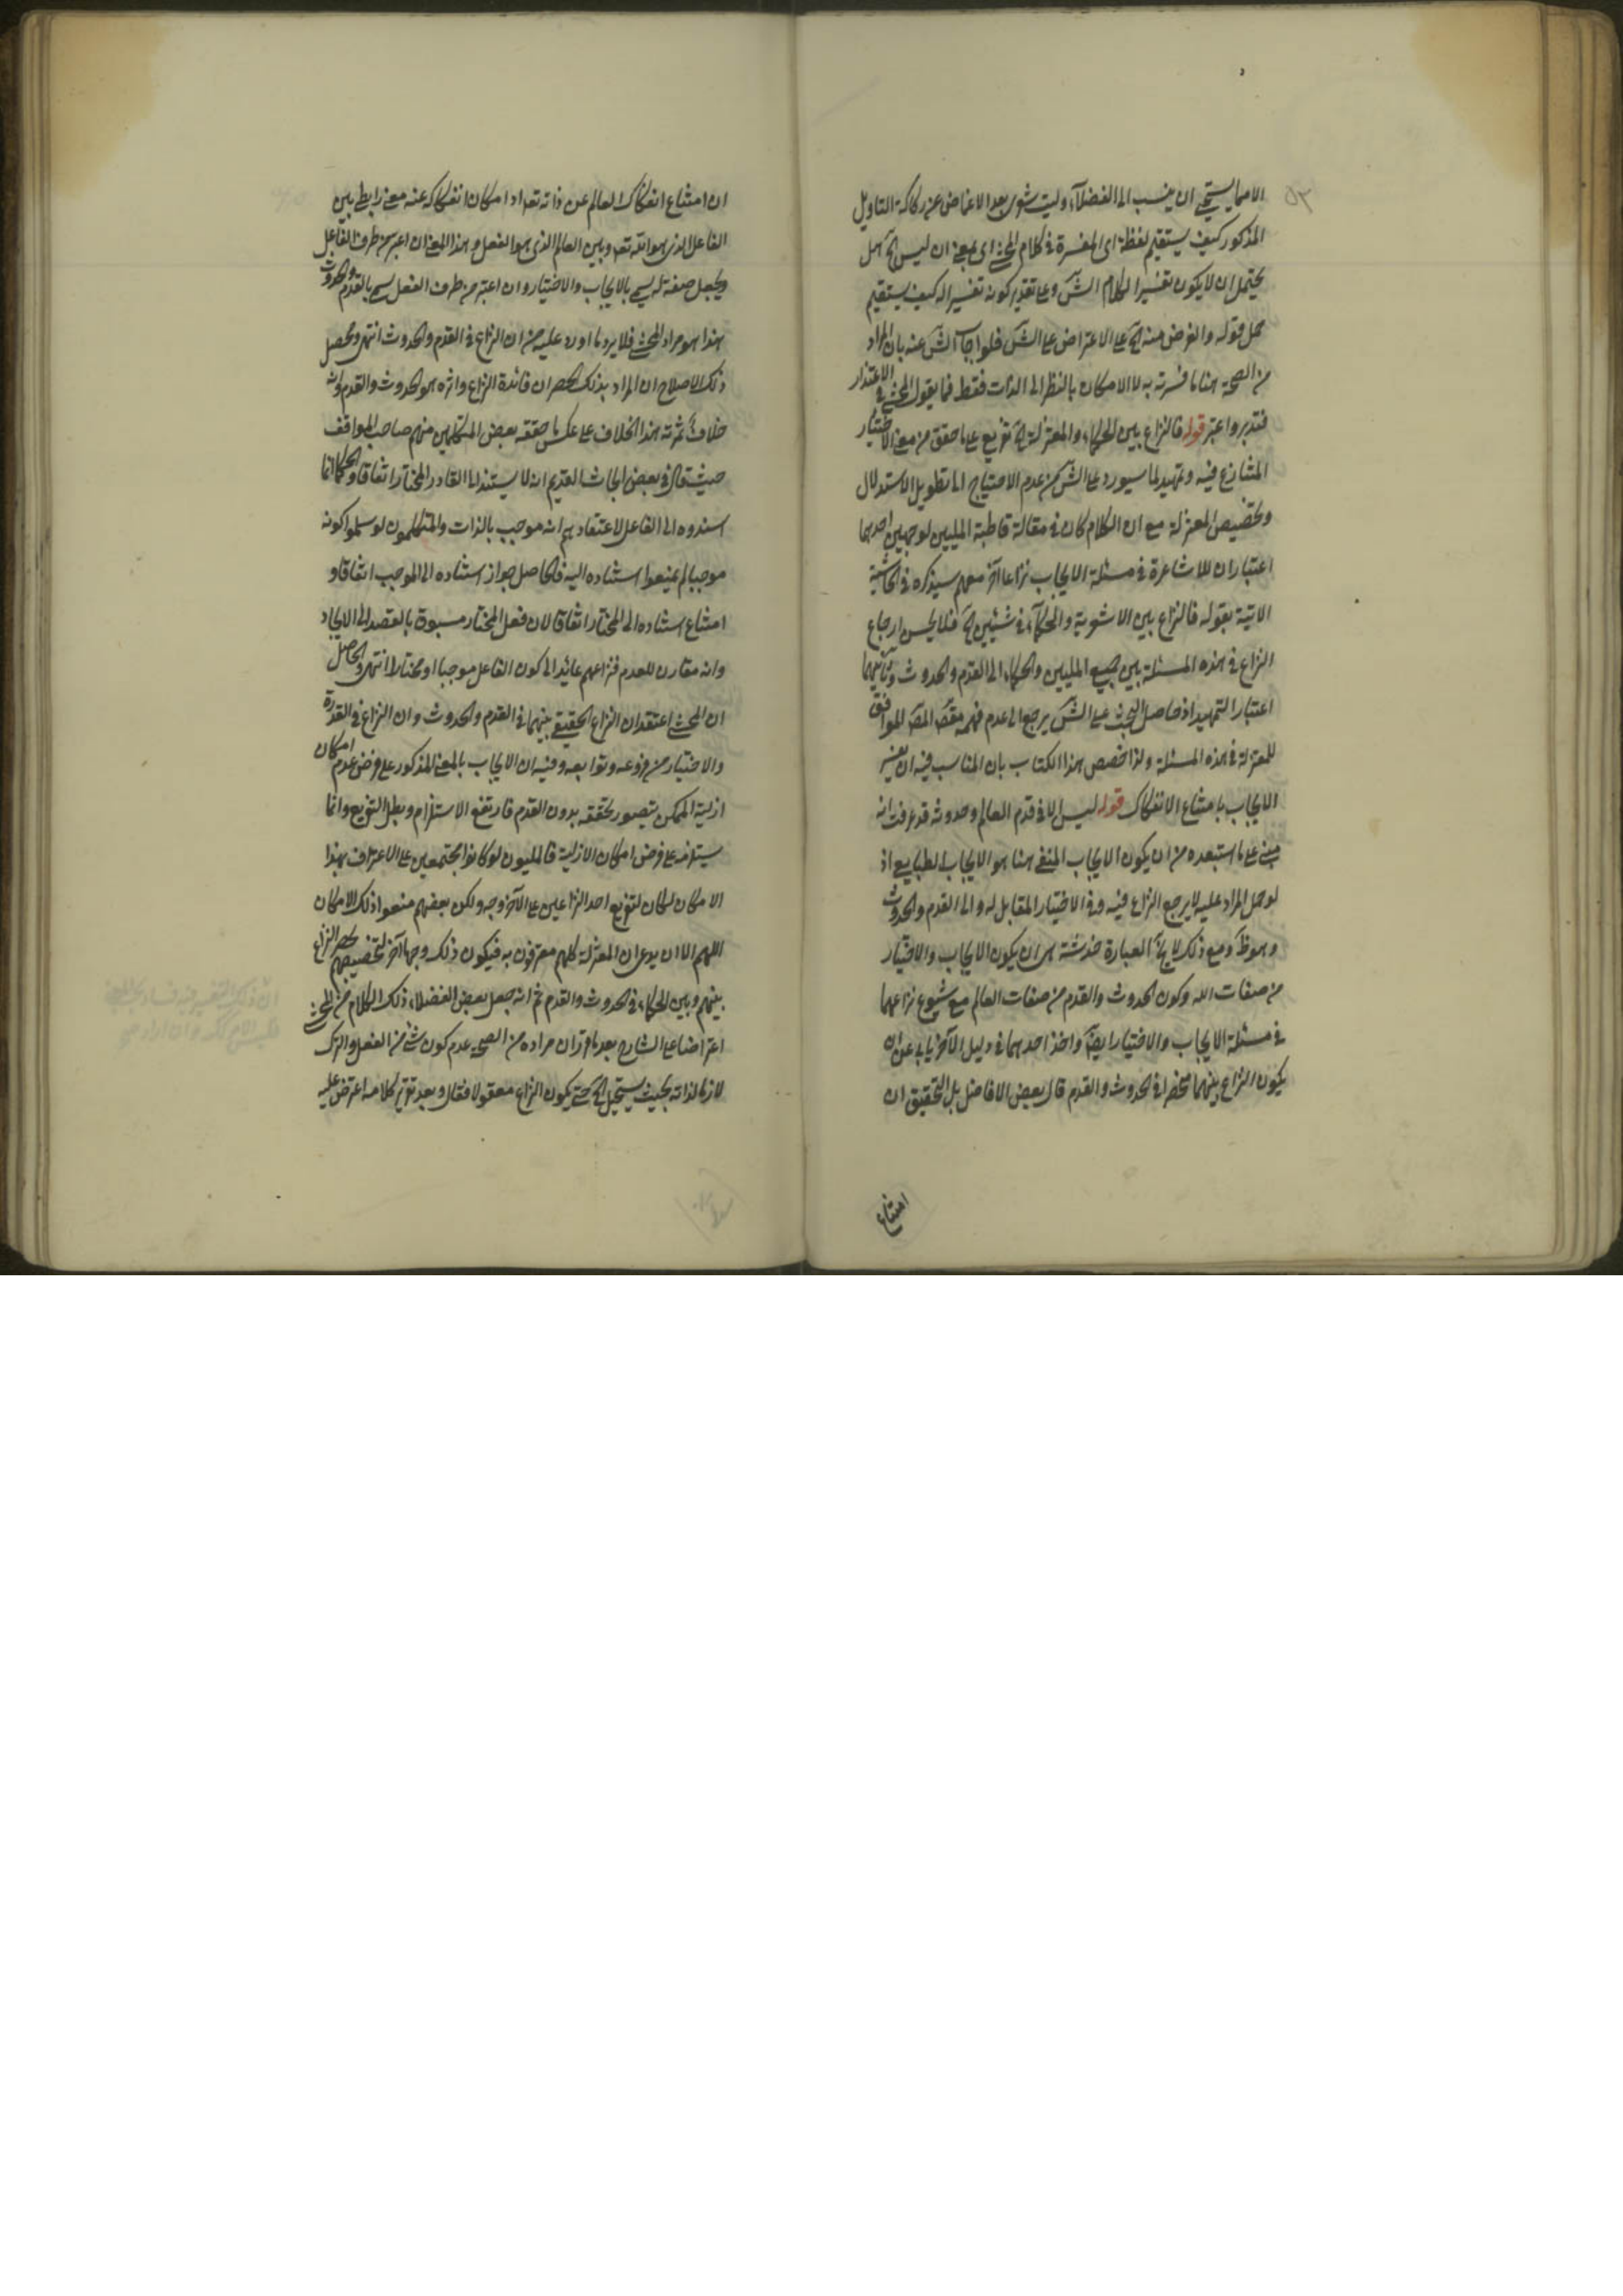 ٥٣
الاصما يستحيى ان ينسب الى الفضلاء وليت شعرى بعد الاغماض عن ركاكة التاويل
المذكور كيف يستقيم لفظة اى المفسرة فى كلام المحشى اى بمعنى ان ليس الخ هل
يحتمل ان لا يكون تفسيرا لكلام الش وعلى تقدير كونه تفسيرا له كيف يستقيم
حمل قوله والغرض منه الخ على الاعتراض على الش فلو اجاب الش عنه بان المراد
من الصحة هنا ما فسرته به لا الامكان بالنظر الى الذات فقط فما يقول المحشى فى الاعتذار
فتدبر واعتبر قوله فالنزاع بين الحكماء والمعتزلة الخ تفريع على ما حقق من معنى الاختيار
المتنازع فيه وتمهيد لما سيورد على الش من عدم الاحتياج الى تطويل الاستدلال
وتخصيص المعتزلة مع ان الكلام كان فى مقالة قاطبة المليين لوجهين احدهما
اعتبار ان للاشاعرة فى مسئلة الايجاب نزاعا آخر معهم سيذكره فى الحاشية
الاتية بقوله فالنزاع بين الاشعرية والحكماء فى شيئين الخ فلا يحسن ارجاع
النزاع فى هذه المسئلة بين جميع المليين والحكماء الى القدم والحدوث وثانيهما
اعتبار التمهيد اذ حاصل البحث على الش يرجع الى عدم فهمه مقصد المص الموافق
للمعتزلة فى هذه المسئلة ولذا خصص هذا الكتاب بان المناسب فيه ان يفسر
الايجاب بامتناع الانفكاك قوله ليس الا فى قدم العالم وحدوثه قد عرفت انه
مبنى على ما استبعده من ان يكون الايجاب المنفى هنا هو الايجاب الطبايعى اذ
لو حمل المراد عليه لا يرجع النزاع فيه وفى الاختيار المقابل له والى القدم والحدوث
وهو ظ ومع ذلك لا يخ العبارة خدشة هى ان يكون الايجاب والاختيار
من صفات الله وكون الحدوث والقدم من صفات العالم مع شيوع نزاعهما
فى مسئلة الايجاب والاختيار ايضا واخذ احدهما فى دليل الآخر يابى عن ان
يكون النزاع بينهما منحصرا فى الحدوث والقدم قال بعض الافاضل بل التحقيق ان
امتناع
ان امتناع انفكاك العالم عن ذاته تعم او امكان انفكاكه عنه معنى رابطى بين
الفاعل الذى هو الله تعم وبين العالم الذى هو الفعل وهذا المعنى ان اعتبر من طرف الفاعل
ويجعل صفة له يسمى بالايجاب والاختيار وان اعتبر من طرف الفعل يسمى بالقدم والحدوث
هذا هو مراد المحشى فلا يرد ما اورد عليه من ان النزاع فى القدم والحدوث انتهى ومحصل
ذلك الاصلاح ان المراد بذلك الحصر ان فائدة النزاع واثره هو الحدوث والقدم وانه
خلاف ثمرته هذا الخلاف على عكس ما حققه بعض المتكلمين منهم صاحب المواقف
حيث قال فى بعض ابحاث القديم انه لا يستند الى القادر المختار اتفاقا والحكماء انما
اسندوه الى الفاعل لاعتقادهم انه موجب بالذات والمتكلمون لو سلموا كونه
موجبا لم يمنعوا استناده اليه فالحاصل جواز استناده الى الموجب اتفاقا و
امتناع استناده الى المختار اتفاقا لان فعل المختار مسبوق بالقصد الى الايجاد
وانه مقارن للعدم فنزاعهم عائد الى كون الفاعل موجبا او مختارا انتهى والحاصل
ان المحشى اعتقد ان النزاع الحقيقى بينهما فى القدم والحدوث وان النزاع فى القدرة
والاختيار من فروعه وتوابعه وفيه ان الايجاب بالمعنى المذكور على فرض عدم امكان
ازلية الممكن يتصور تحققه بدون القدم فارتفع الاستلزام وبطل التفريع وانما
يستلزمه على فرض امكان الازلية فالمليون لو كانوا مجتمعين على الاعتراف بهذا
الامكان لكان لتفريع احد النزاعين على الآخر وجه ولكن بعضهم منعوا ذلك الامكان
اللهم الا ان يدعى ان المعتزلة كلهم معترفون به فيكون ذلك وجها آخر لتخصيصهم بحصر النزاع
بينهم وبين الحكماء فى الحدوث والقدم ثم انه جعل بعض الفضلاء ذلك الكلام من المحشى
اعتراضا على الشارح بعد ما قرر ان مراده من الصحة عدم كون شئ من الفعل والترك
لازما لذاته بحيث يستحيل الخ حتى يكون النزاع معقولا فقال وبعد تقرير كلامه اعترض عليه